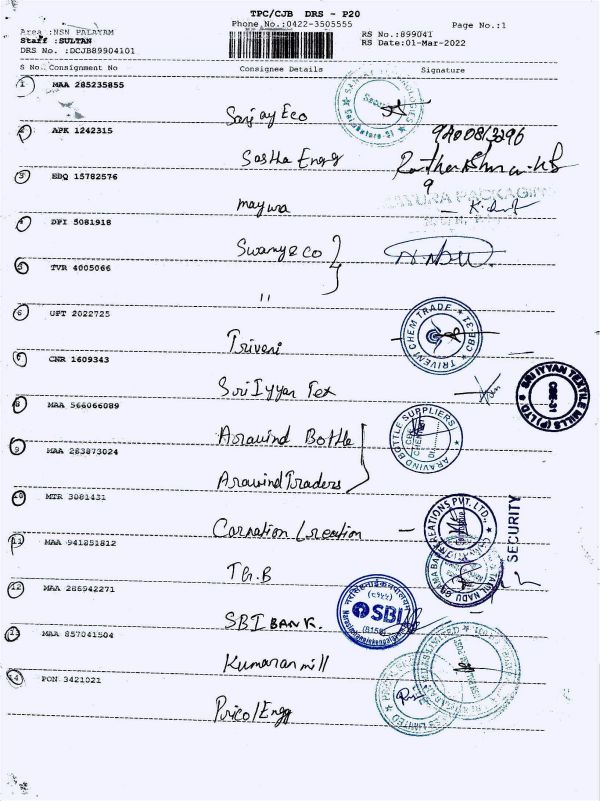 TPC/CJB DRS - P20
Area :NSN PALAYAM
Phone No.:0422-3505555
Page No.:1
Staff :SULTAN
RS No.:899041
DRS No. :DCJB89904101
RS Date:01-Mar-2022
S No. Consignment No Consignee Details Signature
1 MAA 285235855
Sanjay Eco
2 APK 1242315
Sastha Engg
3 EDQ 15782576
mayura
4 DPI 5081918
Swamy & co
5 TVR 4005066
"
6 UPT 2022725
Triveni
TRIVENI CHEM TRADE
7 CNR 1609343
Sri Iyyan Tex
SRI IYYAN TEXTILE MILLS (P) LTD.
CBE-31
8 MAA 566066089
Aravind Bottle
ARAVIND BOTTLE SUPPLIERS
9 MAA 283873024
Aravind Traders
10 MTR 3081431
Carnation Creation
CREATIONS PVT. LTD.,
SECURITY
11 MAA 941851812
T.G.B
TAMIL NADU GRAMA BANK
12 MAA 286942271
SBI BANK.
SBI
13 MAA 857041504
Kumaran mill
14 PON 3421021
Pricol Engg